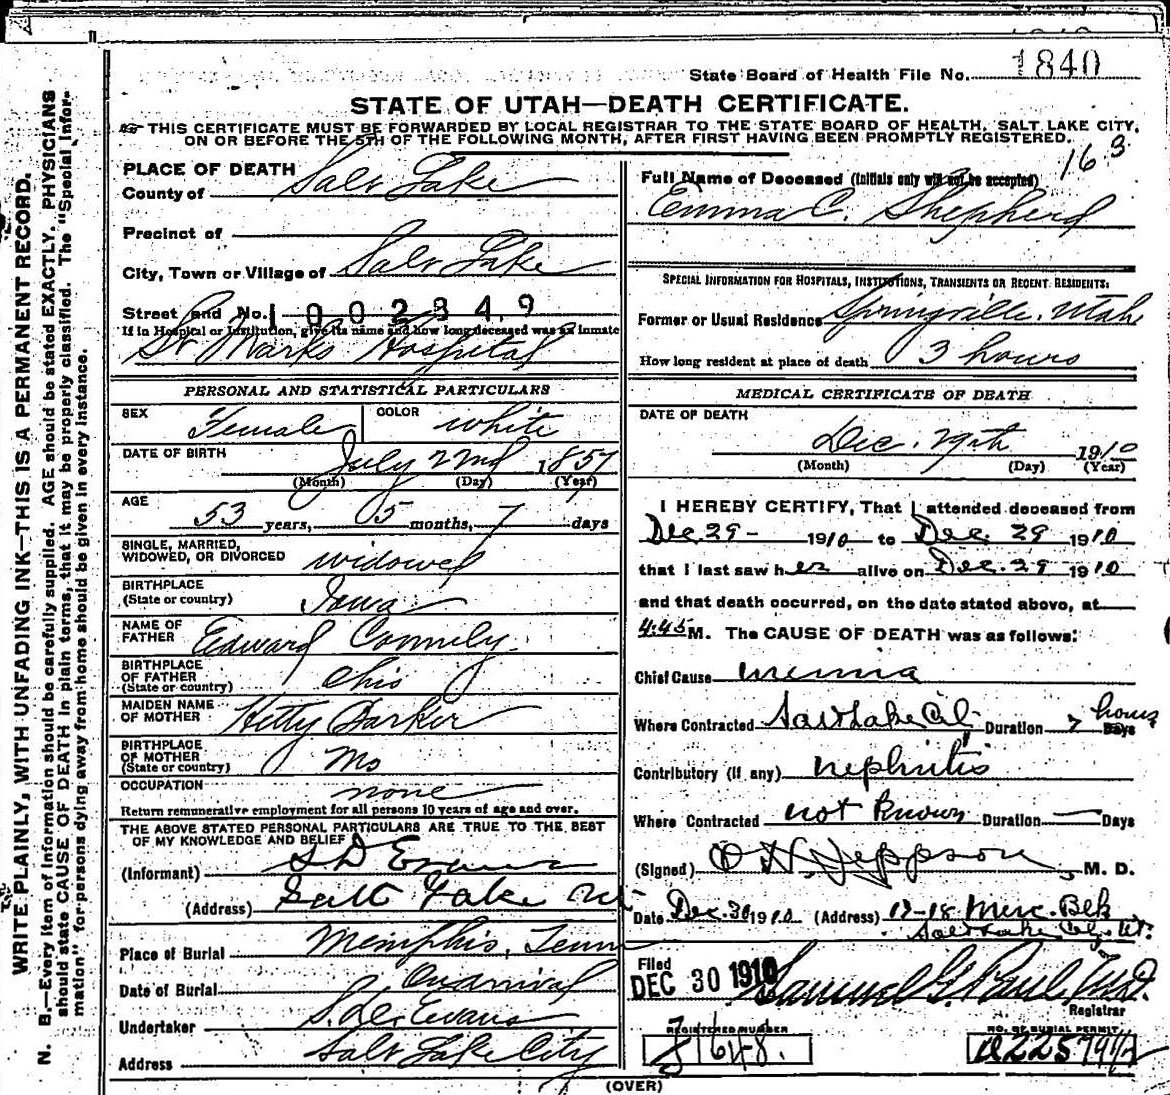 State Board of Health File No. 1840
STATE OF UTAH—DEATH CERTIFICATE.
THIS CERTIFICATE MUST BE FORWARDED BY LOCAL REGISTRAR TO THE STATE BOARD OF HEALTH, SALT LAKE CITY,
ON OR BEFORE THE 5TH OF THE FOLLOWING MONTH, AFTER FIRST HAVING BEEN PROMPTLY REGISTERED.
WRITE PLAINLY, WITH UNFADING INK—THIS IS A PERMANENT RECORD.
N. B.—Every item of information should be carefully supplied. AGE should be stated EXACTLY. PHYSICIANS
should state CAUSE OF DEATH in plain terms, that it may be properly classified. The "Special Infor-
mation" for persons dying away from home should be given in every instance.
PLACE OF DEATH
County of Salt Lake
Precinct of
City, Town or Village of Salt Lake
Street and No. 1002349
If in Hospital or Institution, give its name and how long deceased was an inmate
St Marks Hospital
PERSONAL AND STATISTICAL PARTICULARS
SEX Female COLOR white
DATE OF BIRTH July 22nd 1857
(Month) (Day) (Year)
AGE
53 years, 5 months, 7 days
SINGLE, MARRIED,
WIDOWED, OR DIVORCED widowed
BIRTHPLACE
(State or country) Iowa
NAME OF
FATHER Edward Connely
BIRTHPLACE
OF FATHER
(State or country) Ohio
MAIDEN NAME
OF MOTHER Hetty Parker
BIRTHPLACE
OF MOTHER
(State or country) Mo
OCCUPATION none
Return remunerative employment for all persons 10 years of age and over.
THE ABOVE STATED PERSONAL PARTICULARS ARE TRUE TO THE BEST
OF MY KNOWLEDGE AND BELIEF
(Informant) S D Evans
(Address) Salt Lake Ut
Place of Burial Memphis, Tenn
Date of Burial On arrival
Undertaker S. D. Evans
Address Salt Lake City
163
Full Name of Deceased (Initials only will not be accepted)
Emma C. Shepherd
SPECIAL INFORMATION FOR HOSPITALS, INSTITUTIONS, TRANSIENTS OR RECENT RESIDENTS:
Former or Usual Residence Springville, Utah
How long resident at place of death 3 hours
MEDICAL CERTIFICATE OF DEATH
DATE OF DEATH
Dec. 29th 1910
(Month) (Day) (Year)
I HEREBY CERTIFY, That I attended deceased from
Dec 29 - 1910 to Dec. 29 1910
that I last saw her alive on Dec. 29 1910
and that death occurred, on the date stated above, at
4:45 M. The CAUSE OF DEATH was as follows:
Chief Cause uremia
Where Contracted Salt Lake City Duration 7 hours Days
Contributory (if any) nephritis
Where Contracted not known Duration — Days
(Signed) M. D.
Date Dec. 30 1910 (Address) 17-18 Merc. Blk
Salt Lake City, Ut.
Filed
DEC 30 1910
Registrar
REGISTERED NUMBER
NO. OF BURIAL PERMIT
(OVER)